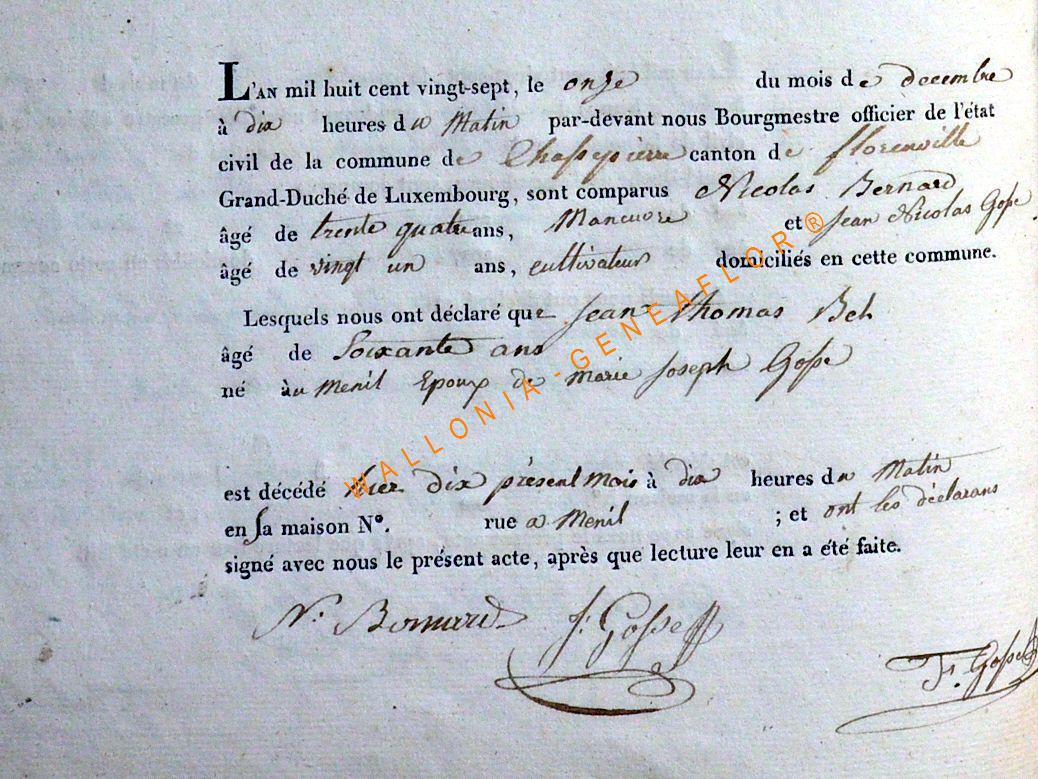 L'AN mil huit cent vingt-sept, le onze du mois de decembre
à dix heures du Matin par-devant nous Bourgmestre officier de l'état
civil de la commune de Chassepierre canton de florenville
Grand-Duché de Luxembourg, sont comparus Nicolas Bernard
âgé de trente quatre ans, Manœuvre et Jean Nicolas Gosse
âgé de vingt un ans, cultivateur domiciliés en cette commune.
Lesquels nous ont déclaré que Jean Thomas
âgé de Soixante ans
né au Menil Epoux de Marie Joseph Gosse
est décédé hier dix présent mois à dix heures du Matin
en sa maison N°. rue a Menil ; et ont les déclarans
signé avec nous le présent acte, après que lecture leur en a été faite.
N. Bernard J. Gosse
F. Gosse
WALLONIA-GENEAFLOR®